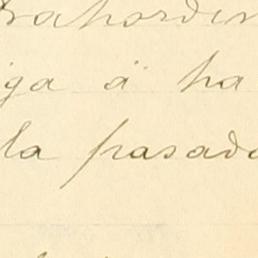 trahordin
iga á ha
la pasada